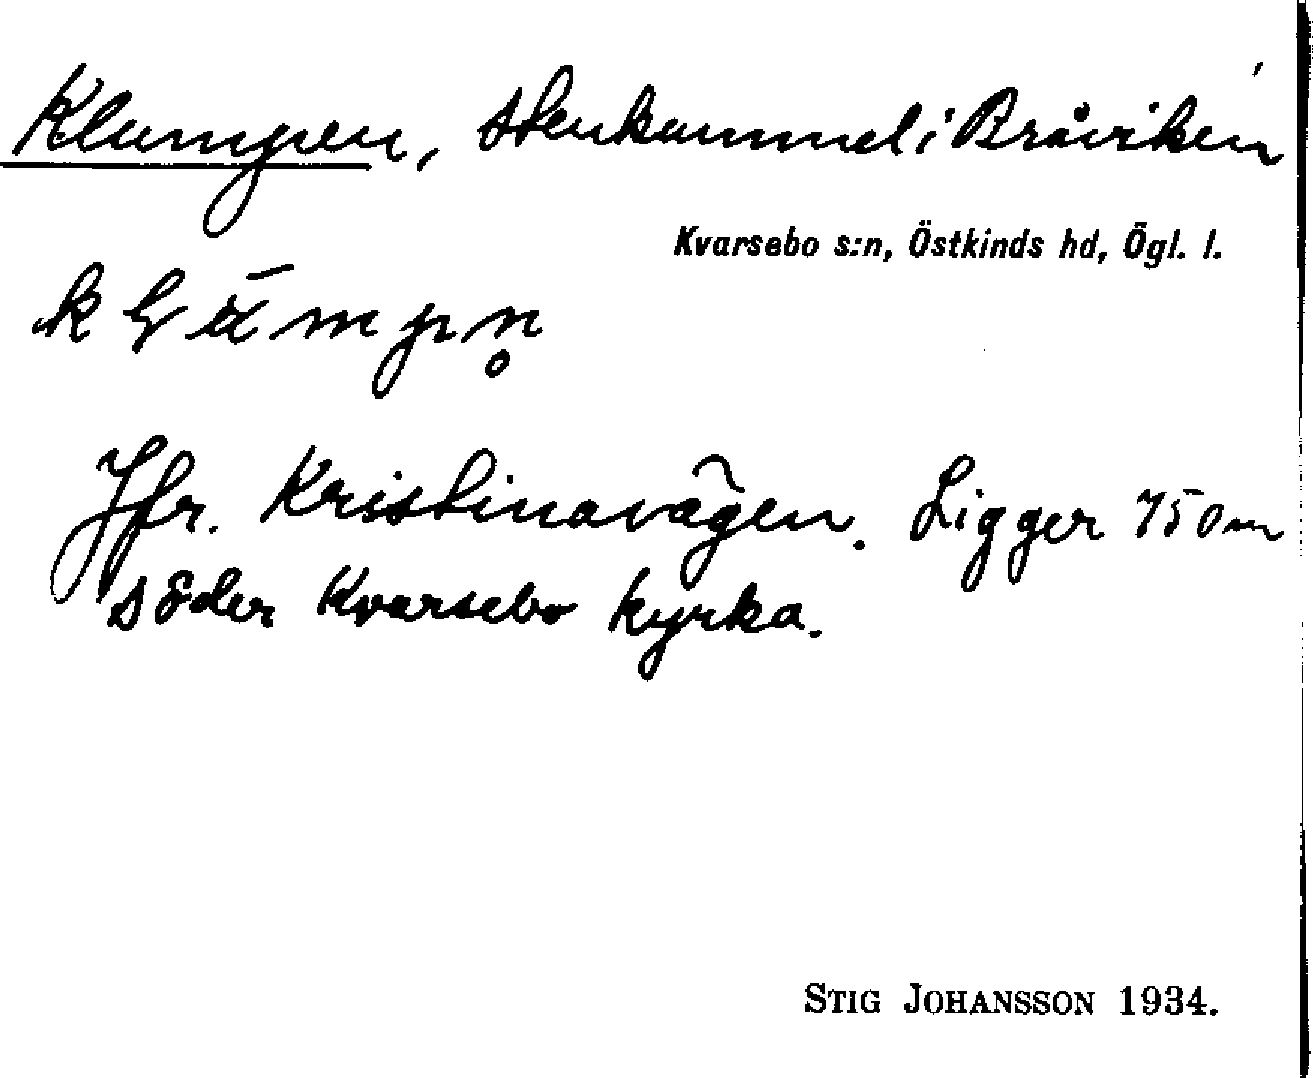 Klumpen, stenkummel i Bråviken
Kvarsebo s:n, Östkinds hd, Ögl. l.
Jfr. Kristinavägen. Ligger 750 m
söder Kvarsebo kyrka.
STIG JOHANSSON 1934.